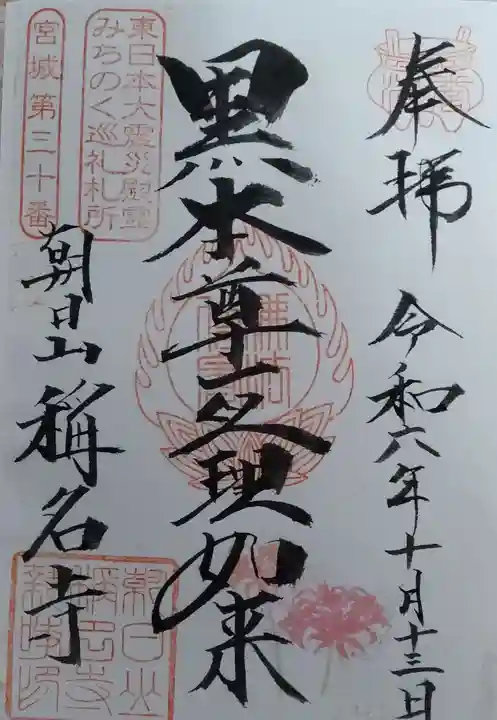 奉拝
令和六年十月十三日
黒本尊
如来
東日本大震災慰霊
みちのく巡礼札所
宮城第三十番
朝日山
稱名寺